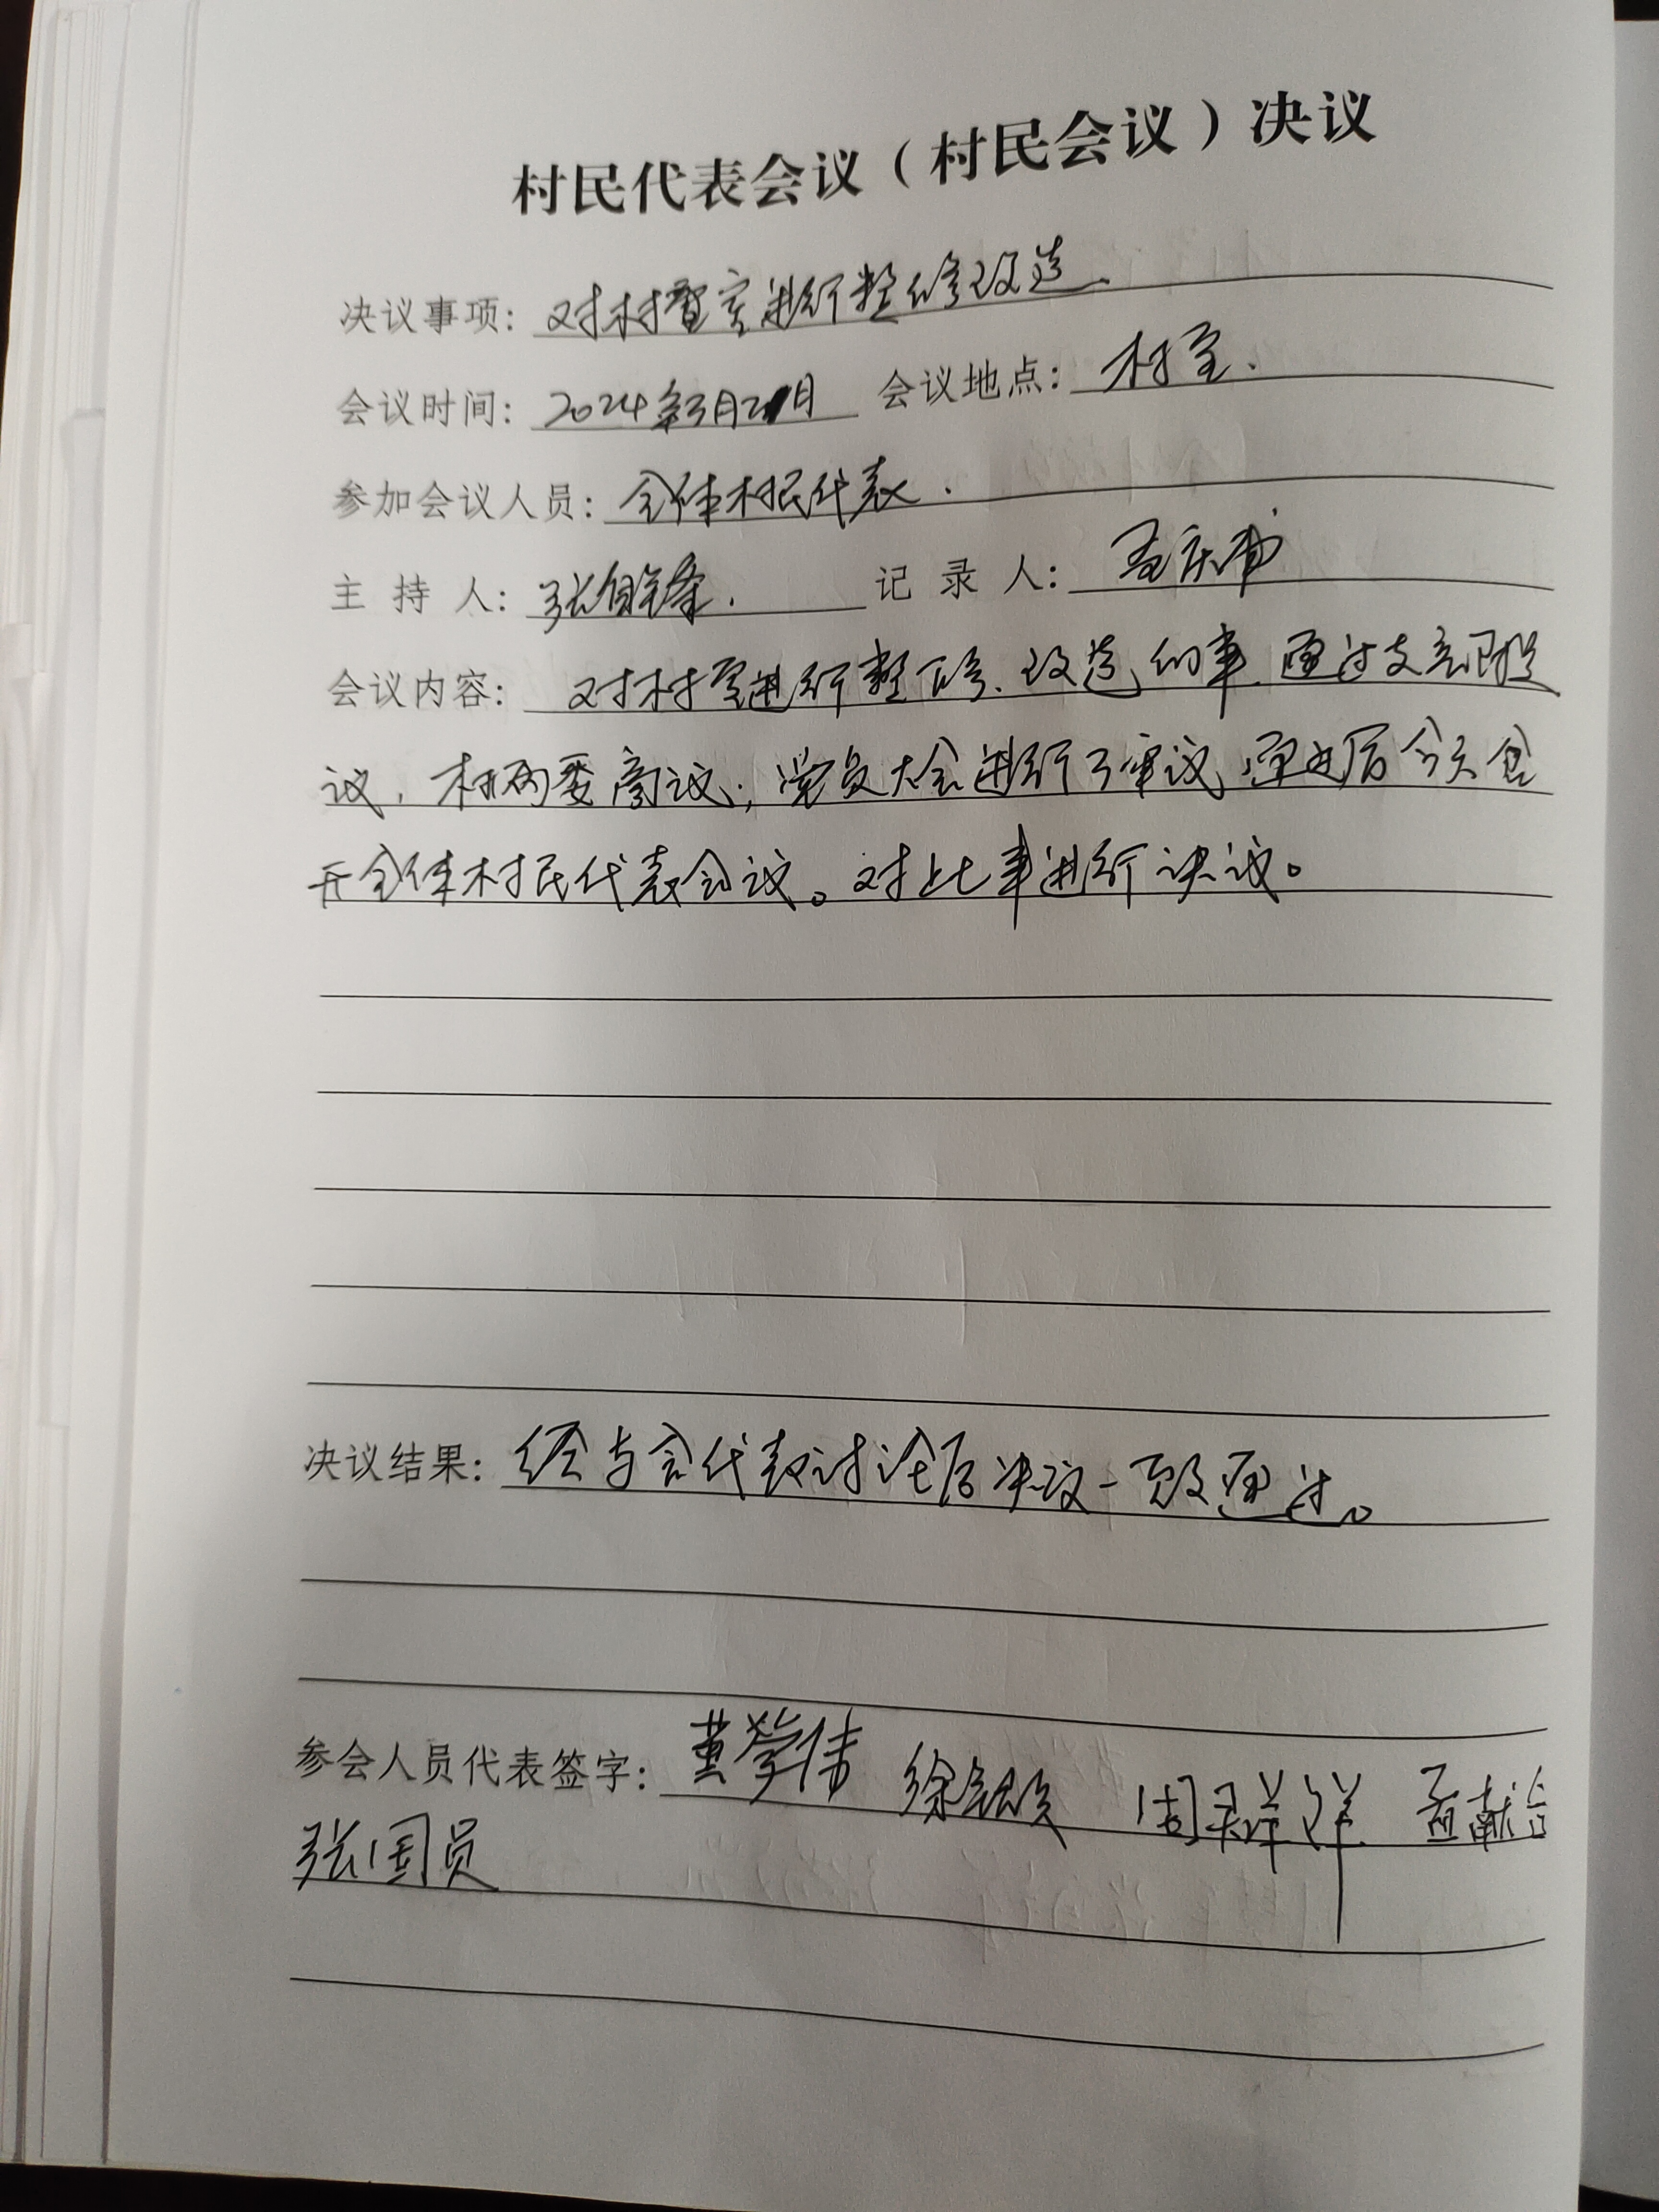 村民代表会议（村民会议）决议
决议事项：对村室进行整修改造.
会议时间：2024年3月2日 会议地点：村室.
参加会议人员：全体村民代表.
主 持 人：张自锋. 记 录 人：孟庆
会议内容：对村室进行整修、改造的事.通过支部提
议，村两委商议；党员大会进行了审议，通过后今天召
开全体村民代表会议。对此事进行决议。
决议结果：经与会代表讨论后决议一致通过。
参会人员代表签字：黄学伟 徐 周祥 孟献台
张国员